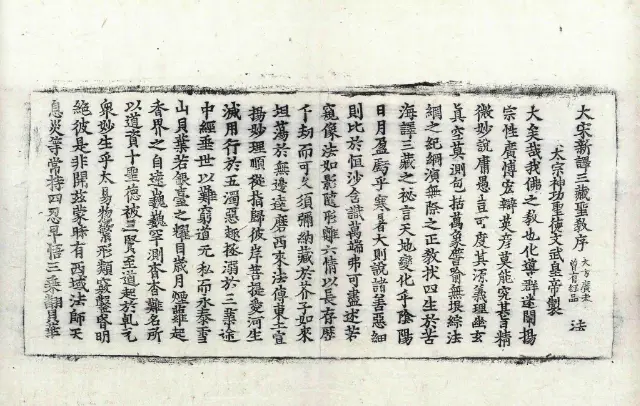 大宋新譯三藏聖教序
法
太宗神功聖德文武皇帝製
大矣哉我佛之教也化導群迷闡揚
宗性廣博宏辯英彥莫能究其旨精
微妙說庸愚豈可度其源義理幽玄
真空莫測包括萬象譬喻無垠綜法
網之紀綱演無際之正教拔四生於苦
海譯三藏之祕言天地變化乎陰陽
日月盈虧乎寒暑大則說諸善惡細
則比於恒沙含識萬端弗可盡述若
窺像法如影隨形離六情以長存歷
千劫而可久須彌納藏於芥子如來
坦蕩於無邊達磨西來法傳東土宣
揚妙理順從指歸彼岸菩提愛河生
滅用行於五濁惡趣拯溺於三業途
中經垂世以難窮道无私而永泰雪
山貝葉若銀臺之耀目歲月煙蘿起
香界之自遠巍巍罕測杳杳難名所
以道資十聖德被三賢至道起於乾元
衆妙生乎太易物繁形類竅鑿昏明
絕彼是非開茲蒙昧時有西域法師天
息災等常持四忍早悟三乘翻貝葉